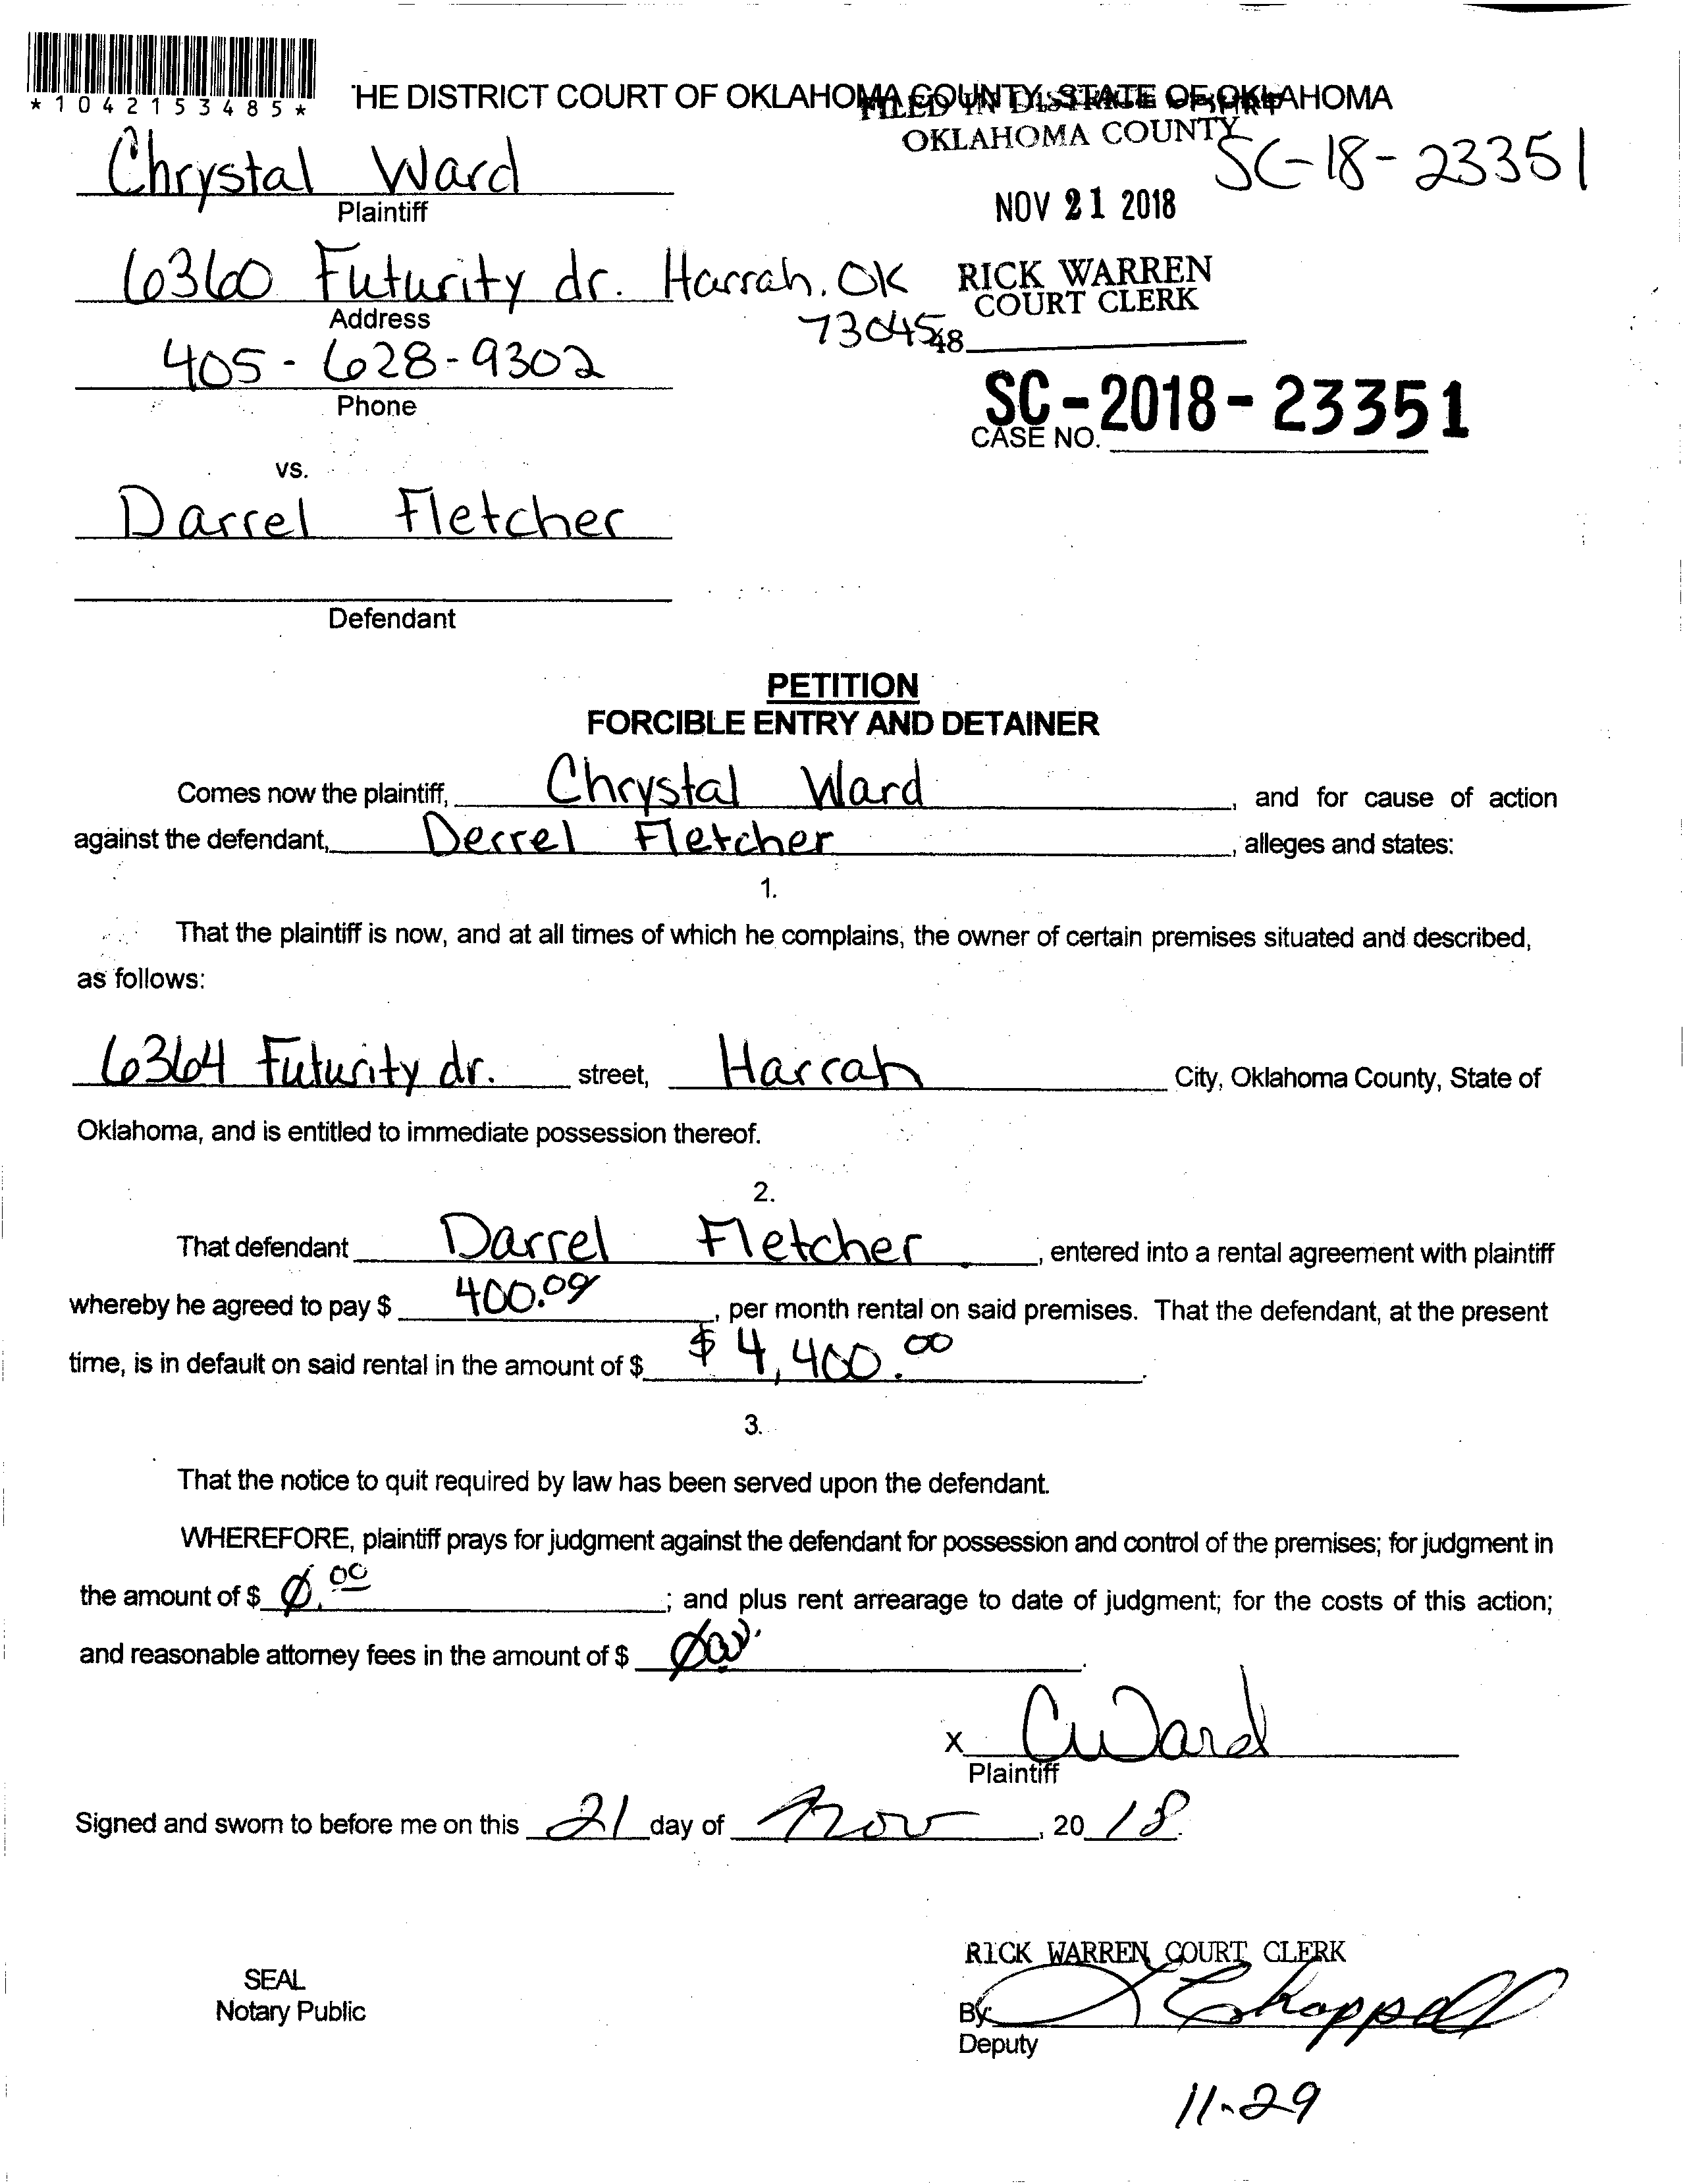 *1042153485*
HE DISTRICT COURT OF OKLAHOMA COUNTY, STATE OF OKLAHOMA
FILED IN DISTRICT COURT
OKLAHOMA COUNTY
SC-18-23351
Chrystal Ward
Plaintiff
NOV 21 2018
6360 Futurity dr. Harrah, OK
73045
Address
RICK WARREN
COURT CLERK
48
405-628-9302
Phone
SC-2018-23351
CASE NO.
vs.
Darrel Fletcher
Defendant
PETITION
FORCIBLE ENTRY AND DETAINER
Comes now the plaintiff, Chrystal Ward, and for cause of action
against the defendant, Derrel Fletcher, alleges and states:
1.
That the plaintiff is now, and at all times of which he complains, the owner of certain premises situated and described,
as follows:
6364 Futurity dr. street, Harrah City, Oklahoma County, State of
Oklahoma, and is entitled to immediate possession thereof.
2.
That defendant Darrel Fletcher, entered into a rental agreement with plaintiff
whereby he agreed to pay $ 400.00, per month rental on said premises. That the defendant, at the present
time, is in default on said rental in the amount of $ $4,400.00.
3.
That the notice to quit required by law has been served upon the defendant.
WHEREFORE, plaintiff prays for judgment against the defendant for possession and control of the premises; for judgment in
the amount of $ 0.00; and plus rent arrearage to date of judgment; for the costs of this action;
and reasonable attorney fees in the amount of $
X CWard
Plaintiff
Signed and sworn to before me on this 21 day of Nov, 2018.
RICK WARREN COURT CLERK
SEAL
Notary Public
By: Chappell
Deputy
11-29